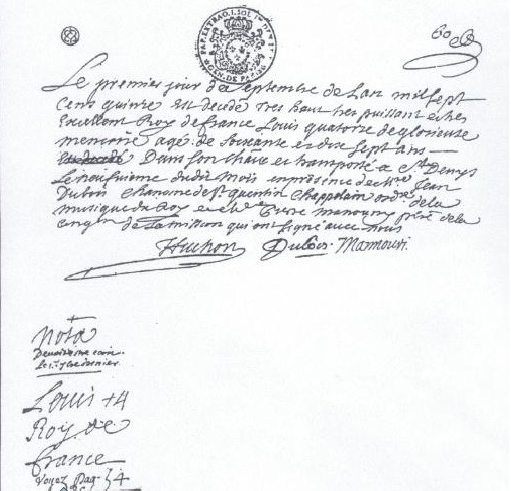 Le premier jour de Septembre de Lan mil Sept
Cens quinze est decedé tres haut tres puissant et tres
Excellent Roy de france Louis quatorze de glorieuse
memoire agé de soixante et dix Sept ans
Dans son chateau et transporté a St Denys
Le neufvieme dudit mois en presence de Mre Jean
Dubois Chanoine de St quentin Chappelain ordre de la
musique du Roy et de Mre Pierre manoury prêtre de la
Cong.on de La mission qui ont signé avec nous
Huchon Dubois Manouri
nota
Louis 14
Roy de
france
Voyez Pag. 54